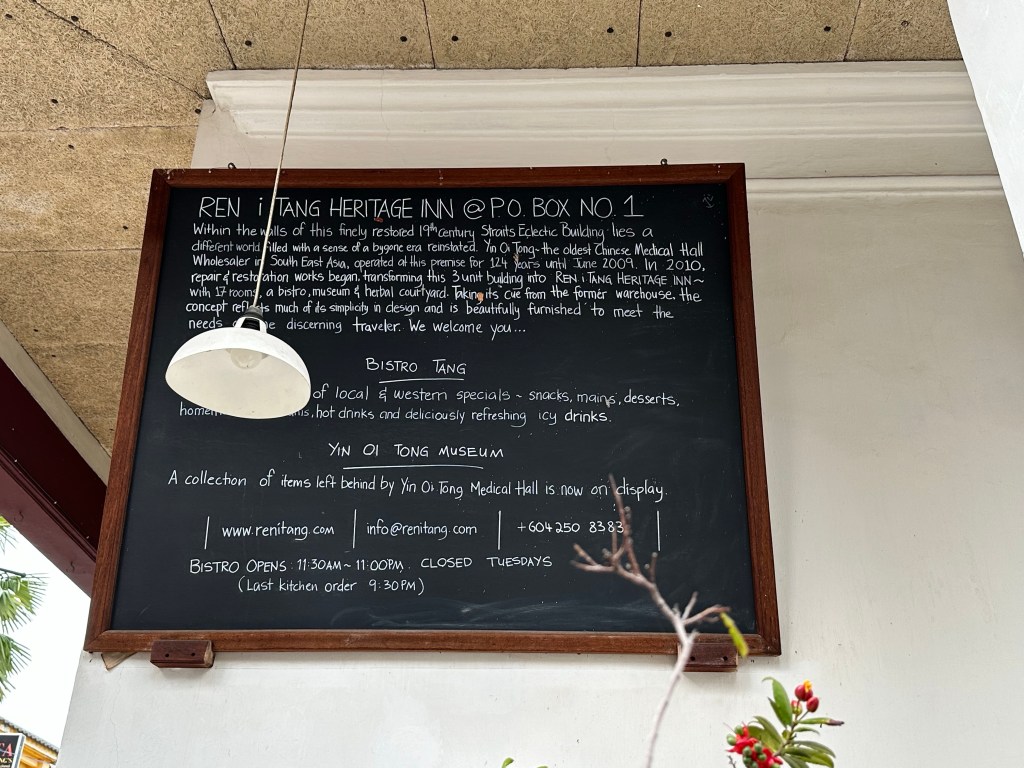 REN i TANG HERITAGE INN @ P.O. BOX NO. 1
Within the walls of this finely restored 19th century Straits Eclectic Building, lies a
different world filled with a sense of a bygone era reinstated. Yin Oi Tong~the oldest Chinese Medical Hall
Wholesaler in South East Asia, operated at this premise for 124 years until June 2009. In 2010,
repair & restoration works began, transforming this 3 unit building into REN i TANG HERITAGE INN ~
with 17 rooms, a bistro, museum & herbal courtyard. Taking its' cue from the former warehouse, the
concept reflects much of its simplicity in design and is beautifully furnished to meet the
needs discerning traveler. We welcome you...
BISTRO TANG
of local & western specials ~ snacks, mains, desserts,
hot drinks and deliciously refreshing icy drinks.
YIN OI TONG MUSEUM
A collection of items left behind by Yin Oi Tong Medical Hall is now on display.
www.renitang.com info@renitang.com +604 250 8383
BISTRO OPENS: 11:30AM ~ 11:00PM. CLOSED TUESDAYS
(Last kitchen order 9:30PM)